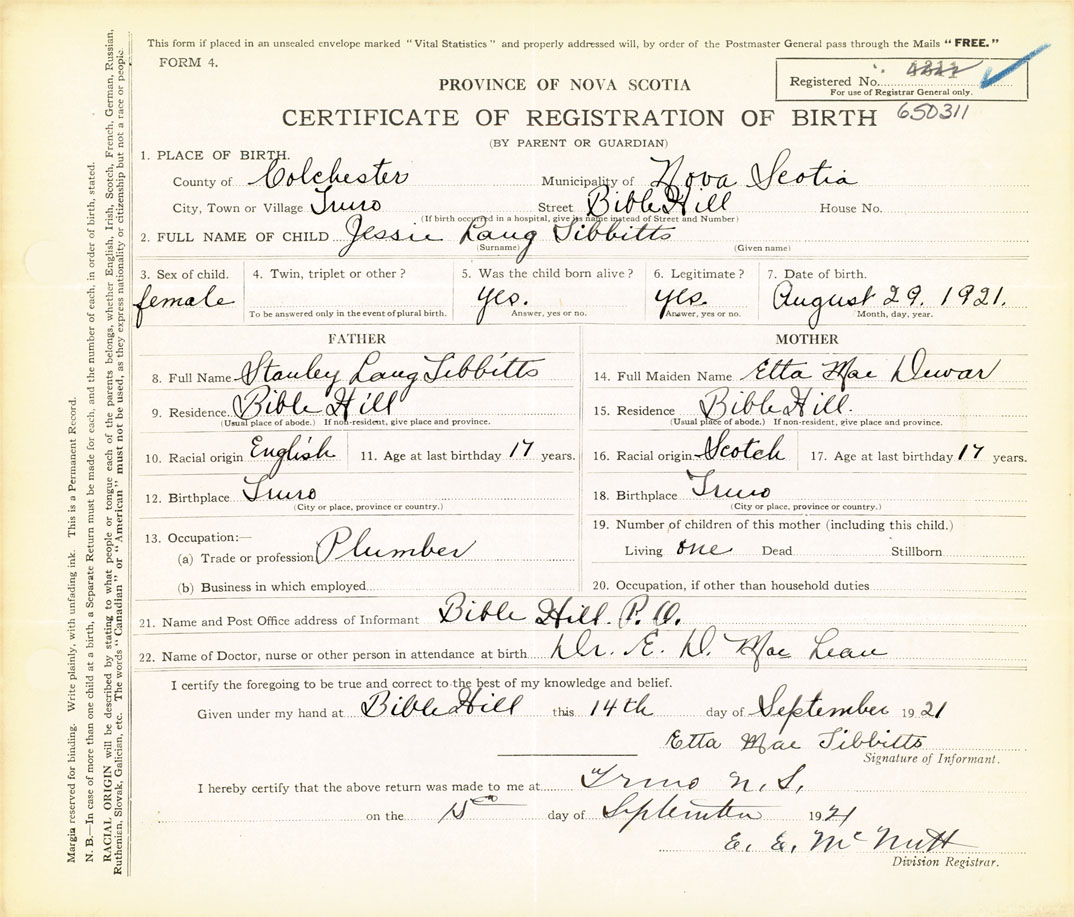 This form if placed in an unsealed envelope marked "Vital Statistics" and properly addressed will, by order of the Postmaster General pass through the Mails "FREE."
FORM 4.
Registered No.
For use of Registrar General only.
PROVINCE OF NOVA SCOTIA
CERTIFICATE OF REGISTRATION OF BIRTH 650311
(BY PARENT OR GUARDIAN)
1. PLACE OF BIRTH.
County of Colchester Municipality of Nova Scotia
City, Town or Village Truro Street Bible Hill House No.
(If birth occurred in a hospital, give its name instead of Street and Number)
2. FULL NAME OF CHILD Jessie Laug Tibbitts
(Surname) (Given name)
3. Sex of child. 4. Twin, triplet or other? 5. Was the child born alive? 6. Legitimate? 7. Date of birth.
female yes. yes. August 29. 1921.
To be answered only in the event of plural birth. Answer, yes or no. Answer, yes or no. Month, day, year.
FATHER MOTHER
8. Full Name Stanley Laug Tibbitts 14. Full Maiden Name Etta Mae Dewar
9. Residence. Bible Hill 15. Residence Bible Hill.
(Usual place of abode.) If non-resident, give place and province. (Usual place of abode.) If non-resident, give place and province.
10. Racial origin English 11. Age at last birthday 17 years. 16. Racial origin Scotch 17. Age at last birthday 17 years.
12. Birthplace Truro 18. Birthplace Truro
(City or place, province or country.) (City or place, province or country.)
13. Occupation:— 19. Number of children of this mother (including this child.)
(a) Trade or profession Plumber Living one Dead Stillborn
(b) Business in which employed 20. Occupation, if other than household duties
21. Name and Post Office address of Informant Bible Hill. P. O.
22. Name of Doctor, nurse or other person in attendance at birth Dr. E. D. Mac Lean
I certify the foregoing to be true and correct to the best of my knowledge and belief.
Given under my hand at Bible Hill this 14th day of September 1921
Etta Mae Tibbitts
Signature of Informant.
I hereby certify that the above return was made to me at Truro N. S.
on the 15 day of September 1921
E. E. McNutt
Division Registrar.
Margin reserved for binding. Write plainly, with unfading ink. This is a Permanent Record.
N. B.—In case of more than one child at a birth, a Separate Return must be made for each, and the number of each, in order of birth, stated.
RACIAL ORIGIN will be described by stating to what people or tongue each of the parents belongs, whether English, Irish, Scotch, French, German, Russian,
Ruthenian, Slovak, Galician, etc. The words "Canadian" or "American" must not be used, as they express nationality or citizenship but not a race or people.